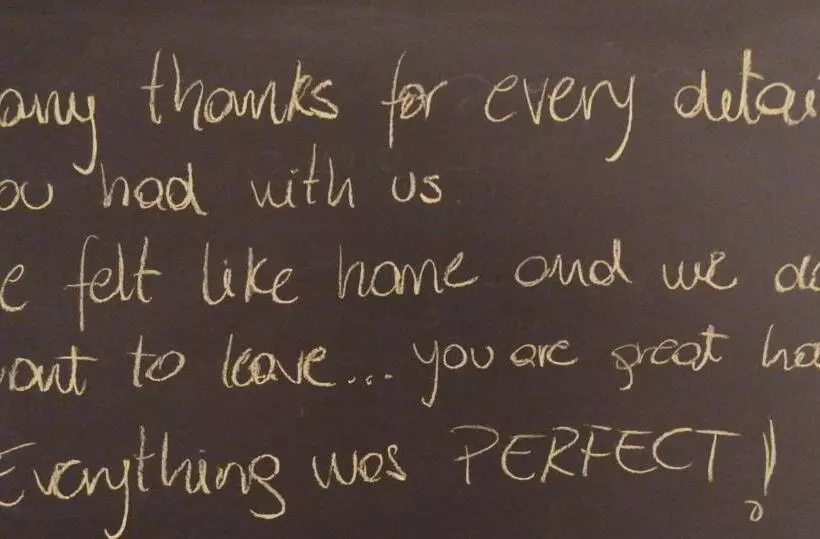 any thanks for every detai
ou had with us
e felt like home and we do
ant to leave... you are great ho
Everything was PERFECT!